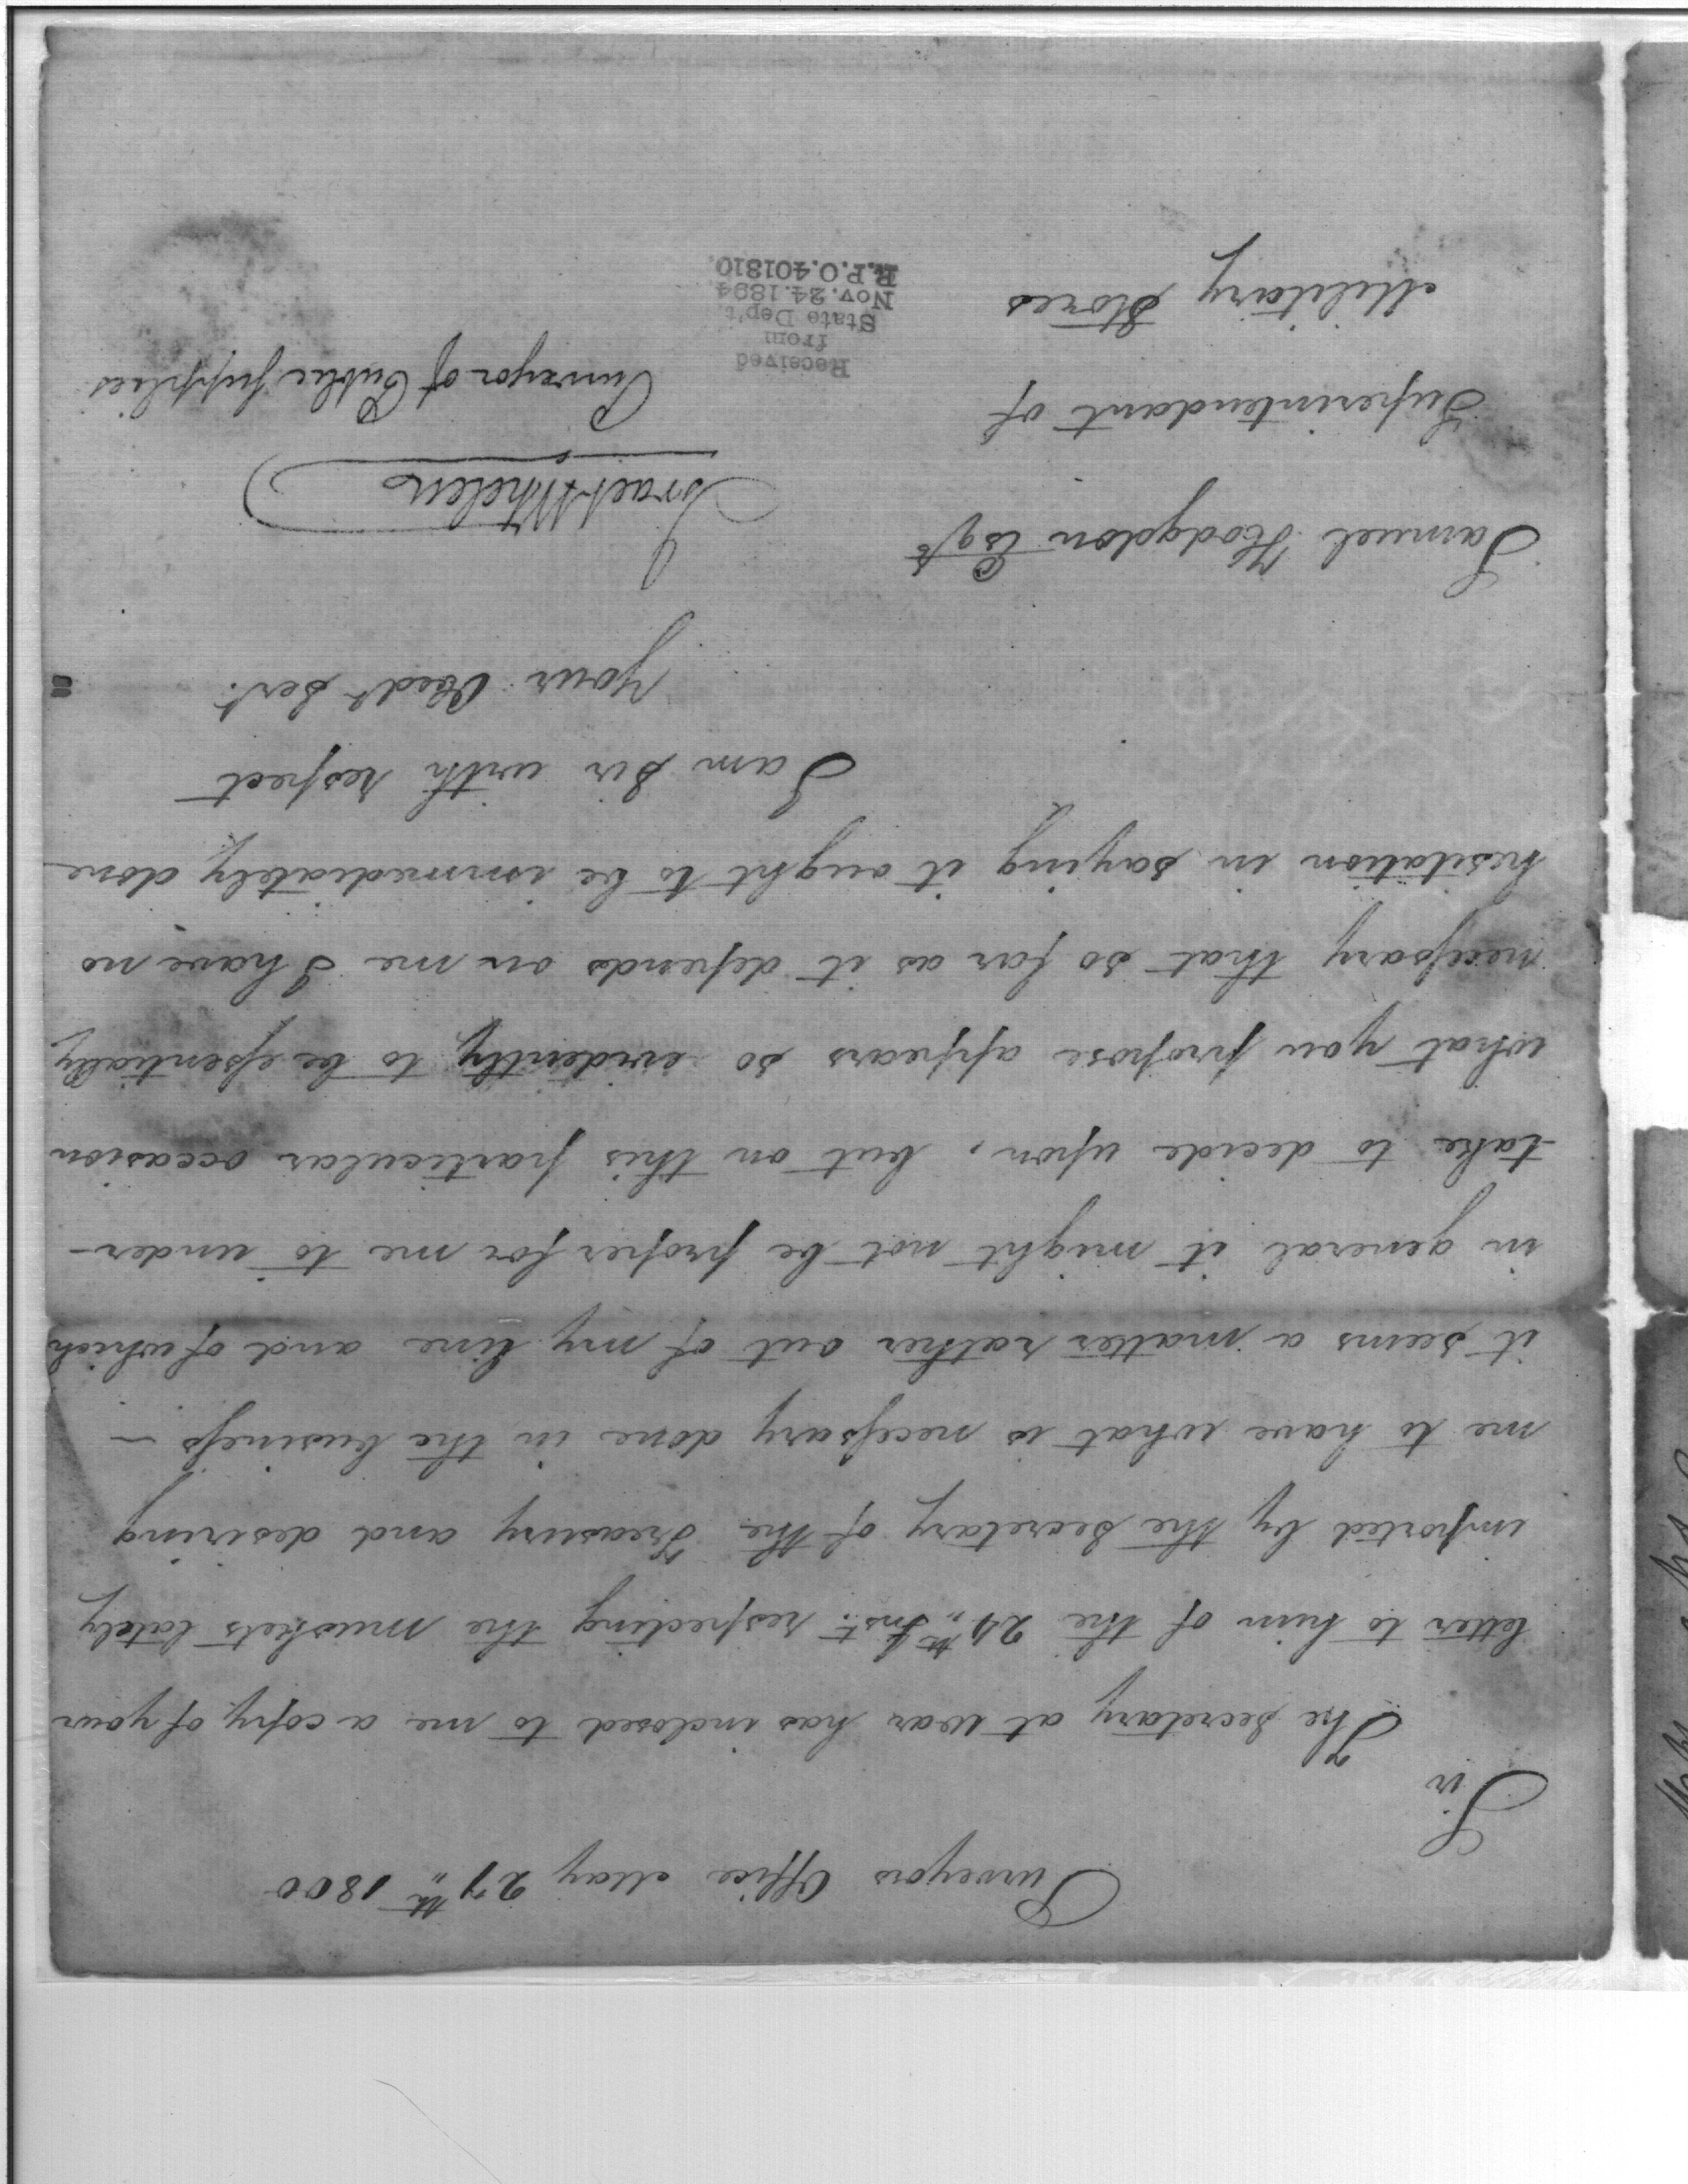 Purveyors Office May 27th 1800
Sir
The Secretary at War has inclosed to me a copy of your
letter to him of the 24th Inst. respecting the muskets lately
imported by the Secretary of the Treasury and desiring
me to have what is necessary done in the business —
it seems a matter rather out of my line and of which
in general it might not be proper for me to under-
take to decide upon, but on this particular occasion
what you propose appears so evidently to be essentially
necessary that so far as it depends on me I have no
hesitation in saying it ought to be immediately done
I am Sir with respect
your Obedt Sert.
Israel Whelen
Purveyor of Public Supplies
Samuel Hodgdon Esqr
Superintendant of
Military Stores
Received
from
State Dep't.
Nov. 24. 1894
R.P.O. 401810.